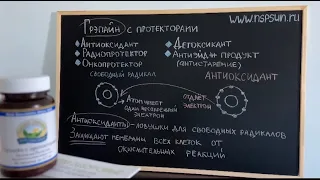 www.nspsun.ru
Грэпайн с протекторами
Антиоксидант
Радиопротектор
Онкопротектор
Детоксикант
Антиэйдж продукт
(антистарение)
свободный радикал
Антиоксидант
Атом имеет
один неспаренный
электрон
отдаёт
электрон
Антиоксиданты - ловушки для свободных радикалов
Защищают мембраны всех клеток от
окислительных реакций